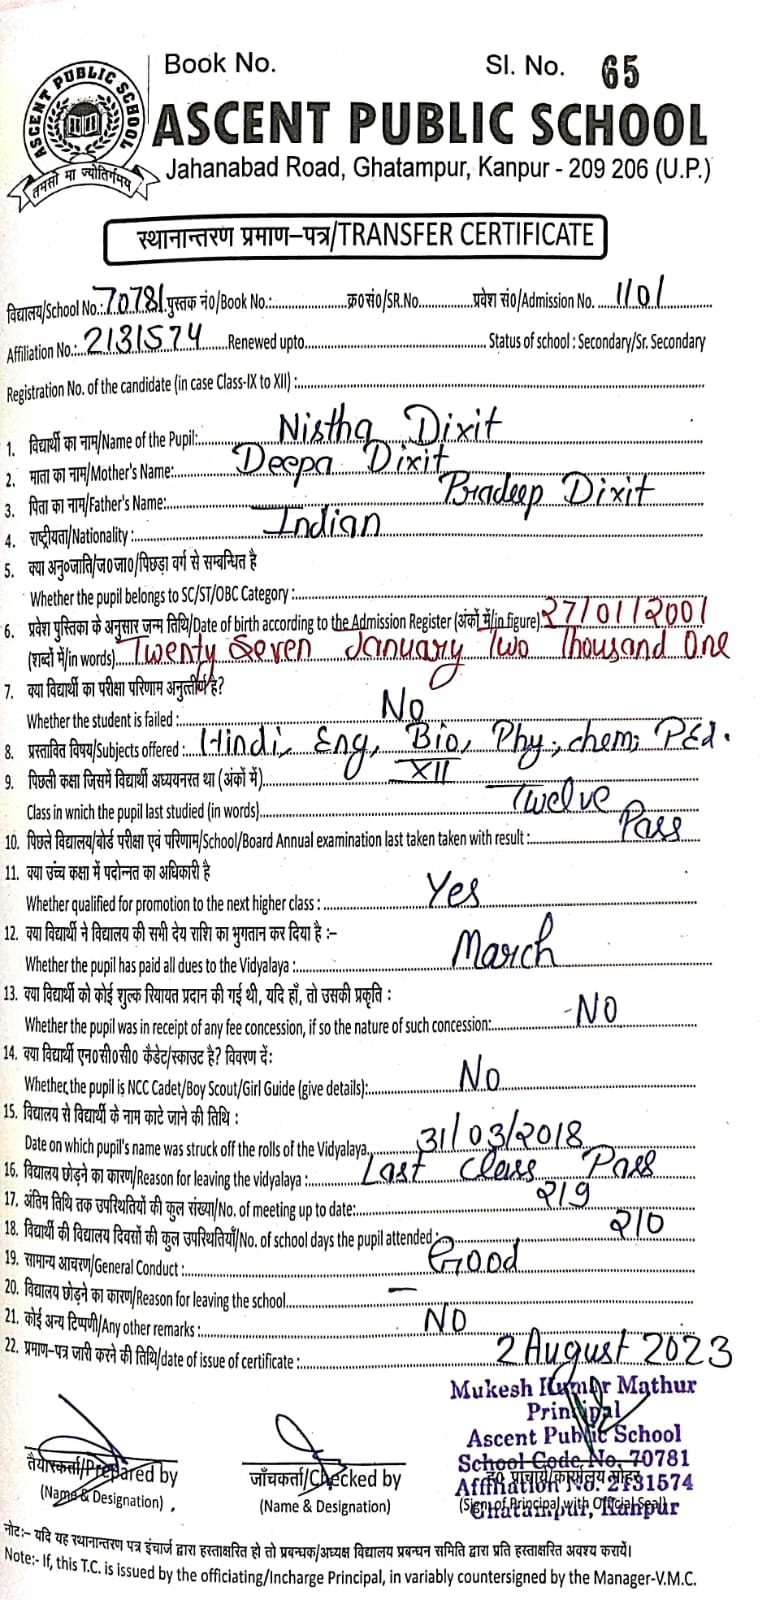 Book No. Sl. No. 65
ASCENT PUBLIC SCHOOL
तमसो मा ज्योतिर्गमय
ASCENT PUBLIC SCHOOL
Jahanabad Road, Ghatampur, Kanpur - 209 206 (U.P.)
स्थानान्तरण प्रमाण–पत्र/TRANSFER CERTIFICATE
विद्यालय/School No.: 70781 पुस्तक नं0/Book No.: क्र0सं0/SR.No. प्रवेश सं0/Admission No. 1101
Affiliation No.: 2131574 Renewed upto Status of school : Secondary/Sr. Secondary
Registration No. of the candidate (in case Class-IX to XII) :
1. विद्यार्थी का नाम/Name of the Pupil: Nistha Dixit
2. माता का नाम/Mother's Name: Deepa Dixit
3. पिता का नाम/Father's Name: Pradeep Dixit
4. राष्ट्रीयता/Nationality : Indian
5. क्या अनु०जाति/ज०जा०/पिछड़ा वर्ग से सम्बन्धित है
Whether the pupil belongs to SC/ST/OBC Category :
6. प्रवेश पुस्तिका के अनुसार जन्म तिथि/Date of birth according to the Admission Register (अंकों में/in figure) 27/01/2001
(शब्दों में/in words) Twenty Seven January Two Thousand One
7. क्या विद्यार्थी का परीक्षा परिणाम अनुत्तीर्ण है?
Whether the student is failed : No
8. प्रस्तावित विषय/Subjects offered : Hindi, Eng, Bio, Phy, chem, P.Ed.
9. पिछली कक्षा जिसमें विद्यार्थी अध्ययनरत था (अंकों में) XII
Class in wnich the pupil last studied (in words) Twelve
10. पिछले विद्यालय/बोर्ड परीक्षा एवं परिणाम/School/Board Annual examination last taken taken with result : Pass
11. क्या उच्च कक्षा में पदोन्नत का अधिकारी है
Whether qualified for promotion to the next higher class : Yes
12. क्या विद्यार्थी ने विद्यालय की सभी देय राशि का भुगतान कर दिया है :–
Whether the pupil has paid all dues to the Vidyalaya : March
13. क्या विद्यार्थी को कोई शुल्क रियायत प्रदान की गई थी, यदि हाँ, तो उसकी प्रकृति :
Whether the pupil was in receipt of any fee concession, if so the nature of such concession: NO
14. क्या विद्यार्थी एन०सी०सी० कैडेट/स्काउट है? विवरण दें:
Whether the pupil is NCC Cadet/Boy Scout/Girl Guide (give details): No
15. विद्यालय से विद्यार्थी के नाम काटे जाने की तिथि :
Date on which pupil's name was struck off the rolls of the Vidyalaya 31/03/2018
16. विद्यालय छोड़ने का कारण/Reason for leaving the vidyalaya : Last Class Pass
17. अंतिम तिथि तक उपस्थितियों की कुल संख्या/No. of meeting up to date: 219
18. विद्यार्थी की विद्यालय दिवसों की कुल उपस्थितियाँ/No. of school days the pupil attended : 210
19. सामान्य आचरण/General Conduct : Good
20. विद्यालय छोड़ने का कारण/Reason for leaving the school –
21. कोई अन्य टिप्पणी/Any other remarks : NO
22. प्रमाण–पत्र जारी करने की तिथि/date of issue of certificate : 2 August 2023
Mukesh Kumar Mathur
Principal
Ascent Public School
School Code No. 70781
Affiliation No. 2131574
Ghatampur, Kanpur
तैयारकर्ता/Prepared by जाँचकर्ता/Checked by ह० प्राचार्य/कार्यालय मोहर
(Name & Designation) (Name & Designation) (Sign of Principal with Official Seal)
नोट:– यदि यह स्थानान्तरण पत्र इंचार्ज द्वारा हस्ताक्षरित हो तो प्रबन्धक/अध्यक्ष विद्यालय प्रबन्धन समिति द्वारा प्रति हस्ताक्षरित अवश्य करायें।
Note:- If, this T.C. is issued by the officiating/Incharge Principal, in variably countersigned by the Manager-V.M.C.